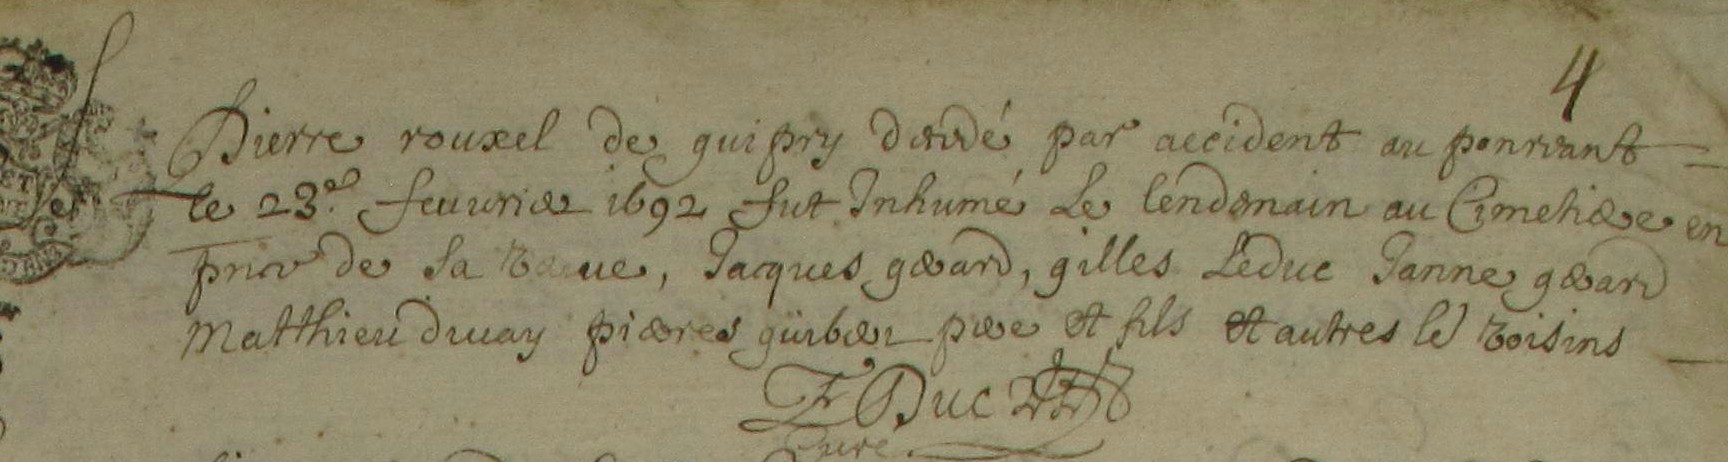 4
Pierre rouxel de guipry décédé par accident au ponruant
le 23.e feuurier 1692 fut Inhumé Le lendemain au Cimetiere en
pnce de sa veuue, Jacques gerard, gilles Leduc Janne gerard
Matthieu druay pierres guiber pere et fils et autres le voisins
F Duc
Cure